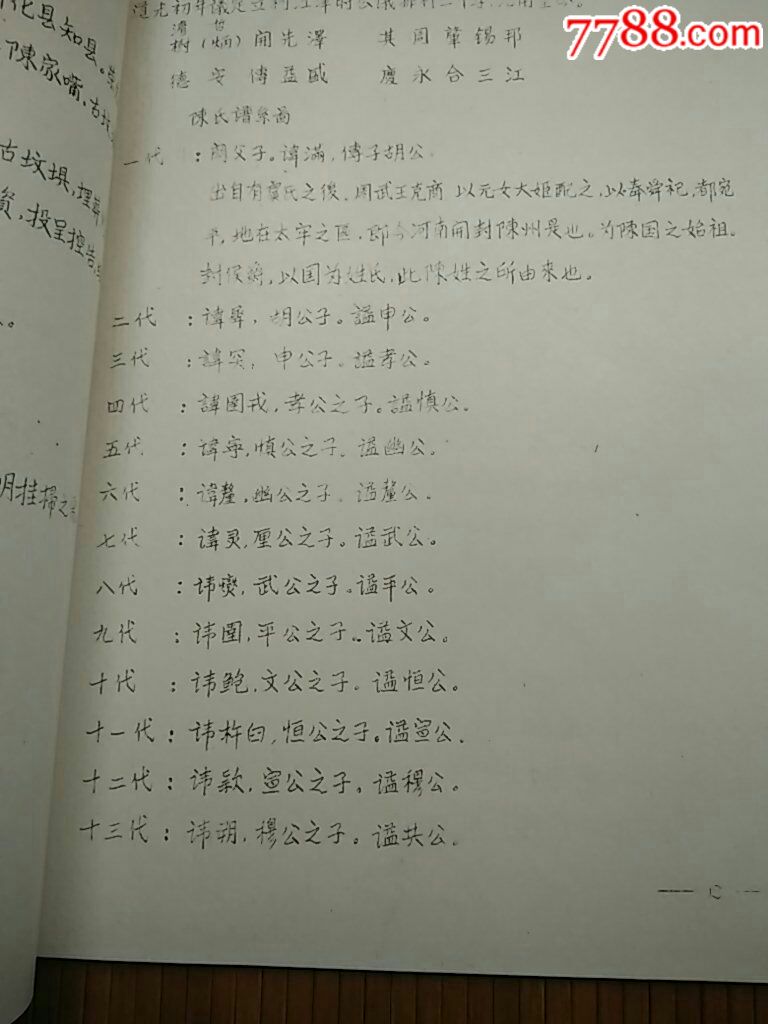 7788.com
化县知县。
陳家嘴、古坟
古坟埧,
資,投呈控告
明挂掃之
樹(炳)開先澤 其周肇錫邦
德安傳益威 慶永合三江
陳氏譜系畧
一代:閼父子。諱滿,傳子胡公
出自有虞氏之後,周武王克商 以元女大姬配之,以奉舜祀,都宛
平,地在太宰之區,即今河南開封陳州是也。为陳国之始祖。
封侯爵,以国为姓氏,此陳姓之所由來也。
二代:諱犀,胡公子。謚申公。
三代:諱突,申公子。謚孝公。
四代:諱圉戎,孝公之子。謚慎公。
五代:諱寧,慎公之子。谥幽公。
六代:諱釐,幽公之子。谥釐公。
七代:諱灵,厘公之子。谥武公。
八代:讳燮,武公之子。谥平公。
九代:讳圉,平公之子。谥文公。
十代:讳鲍,文公之子。谥恒公。
十一代:讳杵臼,恒公之子。谥宣公.
十二代:讳款,宣公之子。谥穆公。
十三代:讳朔,穆公之子。谥共公。